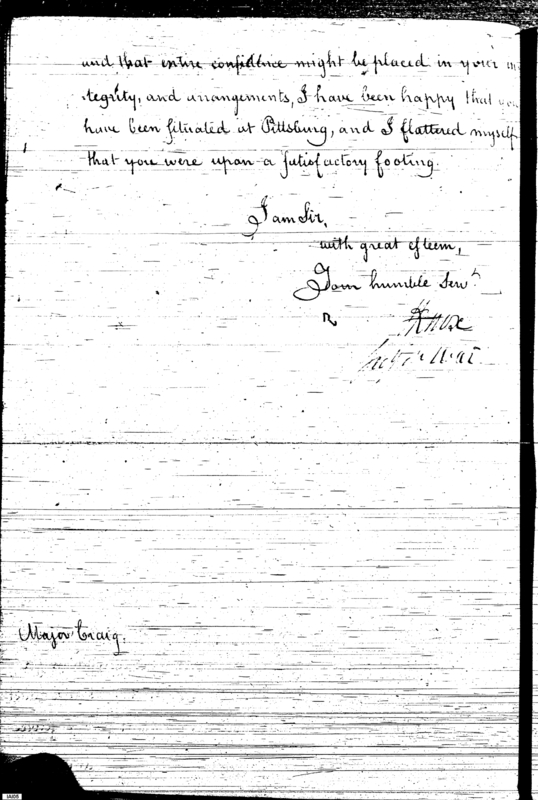 and that entire confidence might be placed in your in
tegrity, and arrangements, I have been happy that you
have been situated at Pittsburg, and I flattered myself
that you were upon a satisfactory footing.
I am Sir,
with great esteem,
Your humble Servt.
HKnox
Secy of War
Major Craig.